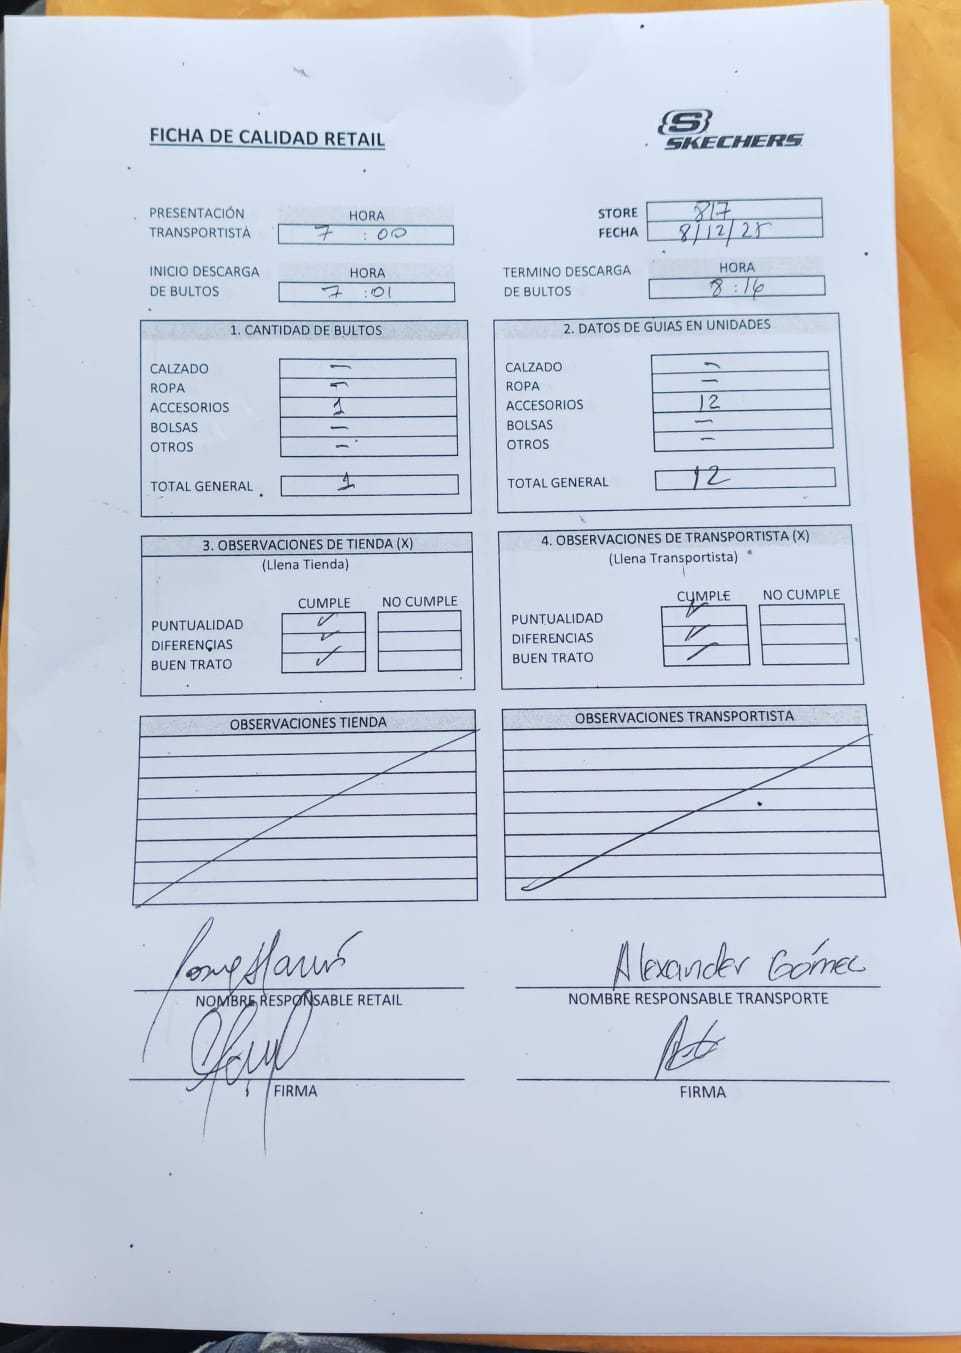 FICHA DE CALIDAD RETAIL
S
SKECHERS
PRESENTACIÓN TRANSPORTISTA HORA 7 : 00
STORE 817
FECHA 8/12/25
INICIO DESCARGA DE BULTOS HORA 7 : 01
TERMINO DESCARGA DE BULTOS HORA 8 : 16
1. CANTIDAD DE BULTOS
CALZADO —
ROPA —
ACCESORIOS 1
BOLSAS —
OTROS —
TOTAL GENERAL 1
2. DATOS DE GUIAS EN UNIDADES
CALZADO —
ROPA —
ACCESORIOS 12
BOLSAS —
OTROS —
TOTAL GENERAL 12
3. OBSERVACIONES DE TIENDA (X)
(Llena Tienda)
CUMPLE NO CUMPLE
PUNTUALIDAD ✓
DIFERENCIAS ✓
BUEN TRATO ✓
4. OBSERVACIONES DE TRANSPORTISTA (X)
(Llena Transportista)
CUMPLE NO CUMPLE
PUNTUALIDAD ✓
DIFERENCIAS ✓
BUEN TRATO ✓
OBSERVACIONES TIENDA
OBSERVACIONES TRANSPORTISTA
NOMBRE RESPONSABLE RETAIL
Alexander Gómez
NOMBRE RESPONSABLE TRANSPORTE
FIRMA
FIRMA